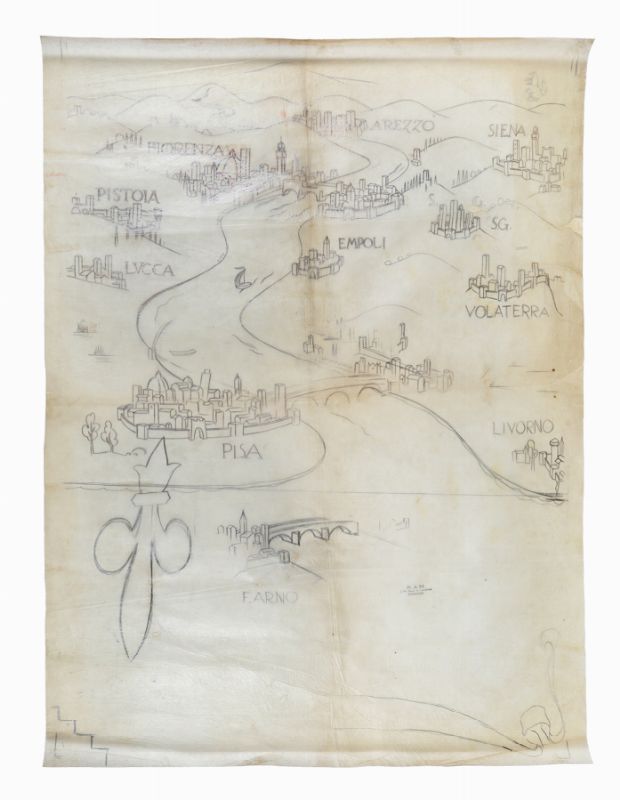 AREZZO
SIENA
FIORENZA
PISTOIA
S.
SG.
EMPOLI
LVCCA
VOLATERRA
LIVORNO
PISA
F. ARNO